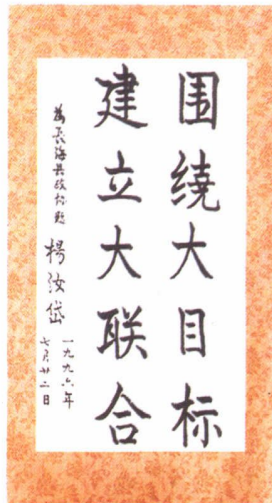 围绕大目标
建立大联合
為長海县政协题
楊汝岱
一九九六年
七月廿二日